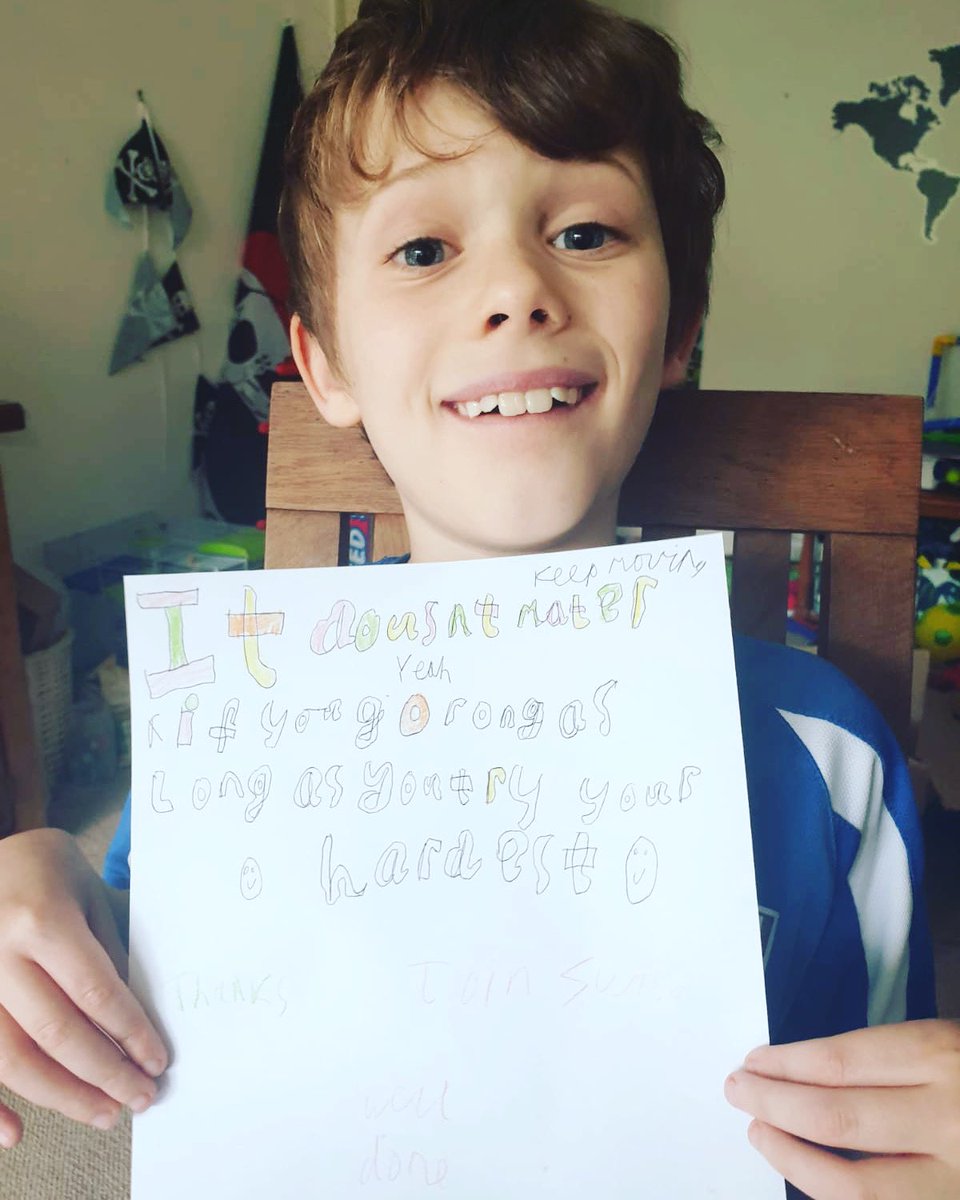 Keep moving
It dousnt mater
Yeah
K if you go rong as
Long as you try your
hardest
Thanks Join
well
done
ED